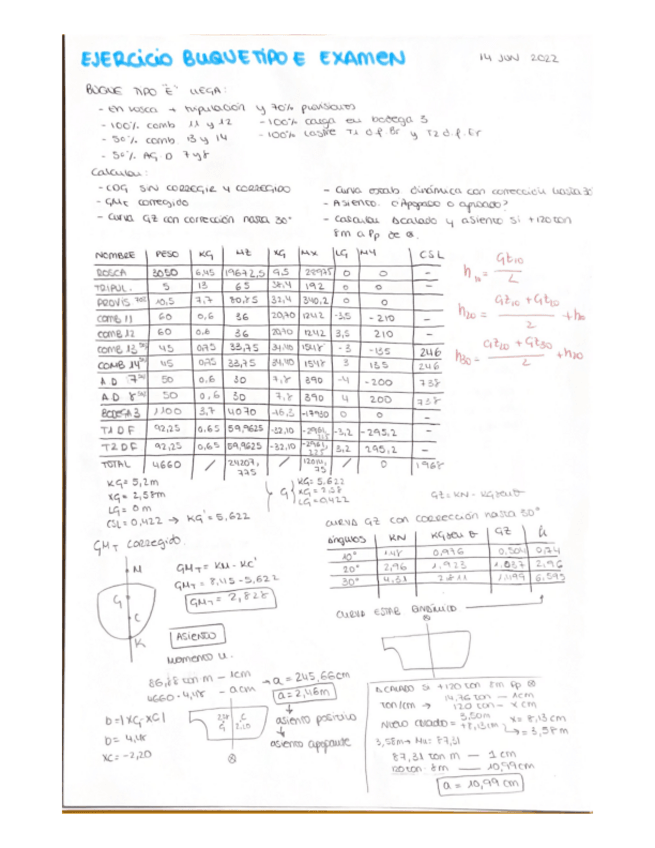 EJERCICIO BUQUE TIPO E EXAMEN
14 JUN 2022
BUQUE TIPO "E" LLEGA:
- En rosca + tripulación y 70% provisiones
- 100% comb 11 y 12
- 100% carga en bodega 3
- 50% comb 13 y 14
- 100% Lastre T1 d.f. Br y T2 d.f. Er
- 50% AG D 7 y 8
Calcular:
- CDG SIN CORREGIR Y CORREGIDO
- GMt corregido
- Curva GZ con corrección hasta 30°
- Curva estab. dinámica con corrección hasta 30
- Asiento. ¿Apopado o aproado?
- Calcular Δcalado y asiento si +120 ton
8m a Pp de ⊗.
NOMBRE PESO KG MZ XG MX LG MY CSL
ROSCA 3050 6,45 19672,5 9,5 28975 0 0 -
TRIPUL. 5 13 65 38,4 192 0 0 -
PROVIS 70% 10,5 7,7 80,85 32,4 340,2 0 0 -
Comb 11 60 0,6 36 20,70 1242 -3,5 -210 -
Comb 12 60 0,6 36 20,70 1242 3,5 210 -
Comb 13 50% 45 0,75 33,75 34,40 1548 -3 -135 246
COMB 14 50% 45 0,75 33,75 34,40 1548 3 135 246
A D 7 50% 50 0,6 30 7,8 390 -4 -200 738
A.D 8 50% 50 0,6 30 7,8 390 4 200 738
BODEGA 3 1100 3,7 4070 -16,3 -17930 0 0 -
T1 D F 92,25 0,65 59,9625 -32,10 -3,2 -295,2 -
T2 D F 92,25 0,65 59,9625 -32,10 3,2 295,2 -
TOTAL 4660 / 24207,775 / / 0 1968
h10 = GZ10 / 2
h20 = GZ10 + GZ20 / 2 + h10
h30 = GZ20 + GZ30 / 2 + h20
KG = 5,2m
XG = 2,58m
LG = 0m
CSL = 0,422 → KG' = 5,622
G
KG = 5,622
XG = 2,58
LG = 0,422
GZ = KN - KG senθ
CURVA GZ con corrección hasta 30°
ángulos KN KG sen θ GZ h
10° 1,48 0,976 0,504
20° 2,96 1,923 1,037 2,96
30° 4,31 2,811 1,499 6,595
CURVA ESTAB DINÁMICA
⊗
GMT corregido.
M
G
C
K
GMT = KM - KG'
GMT = 8,45 - 5,622
GMT = 2,828
ASIENTO
Momento u.
86,88 ton m - 1cm
4660 · 4,48 - a cm
→ a = 245,66cm
a = 2,46m
asiento positivo
asiento apopante
b = |XG - XC|
b = 4,48
XC = -2,20
G
C
⊗
Δ CALADO si +120 ton 8m Pp ⊗
Ton/cm → 14,76 ton - 1cm
120 ton - x cm
x = 8,13 cm
Nuevo calado = 3,50m + 8,13cm = 3,58m
3,58m → Mu: 87,31
87,31 ton m - 1 cm
120 ton · 8m - 10,99cm
a = 10,99 cm